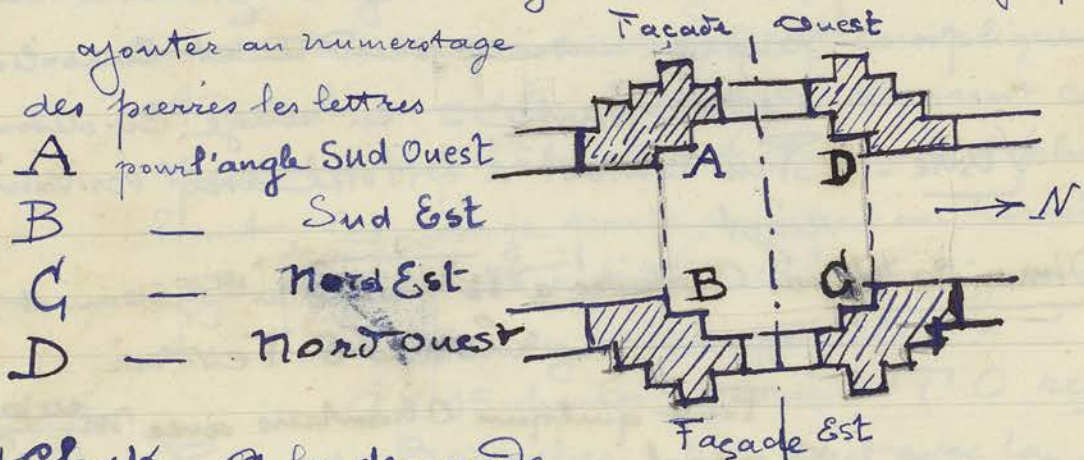 ajouter au numerotage
des pierres les lettres
A pour l'angle Sud Ouest
B — Sud Est
C — Nord Est
D — Nord ouest
Façade Ouest
A D
N
B C
Façade Est